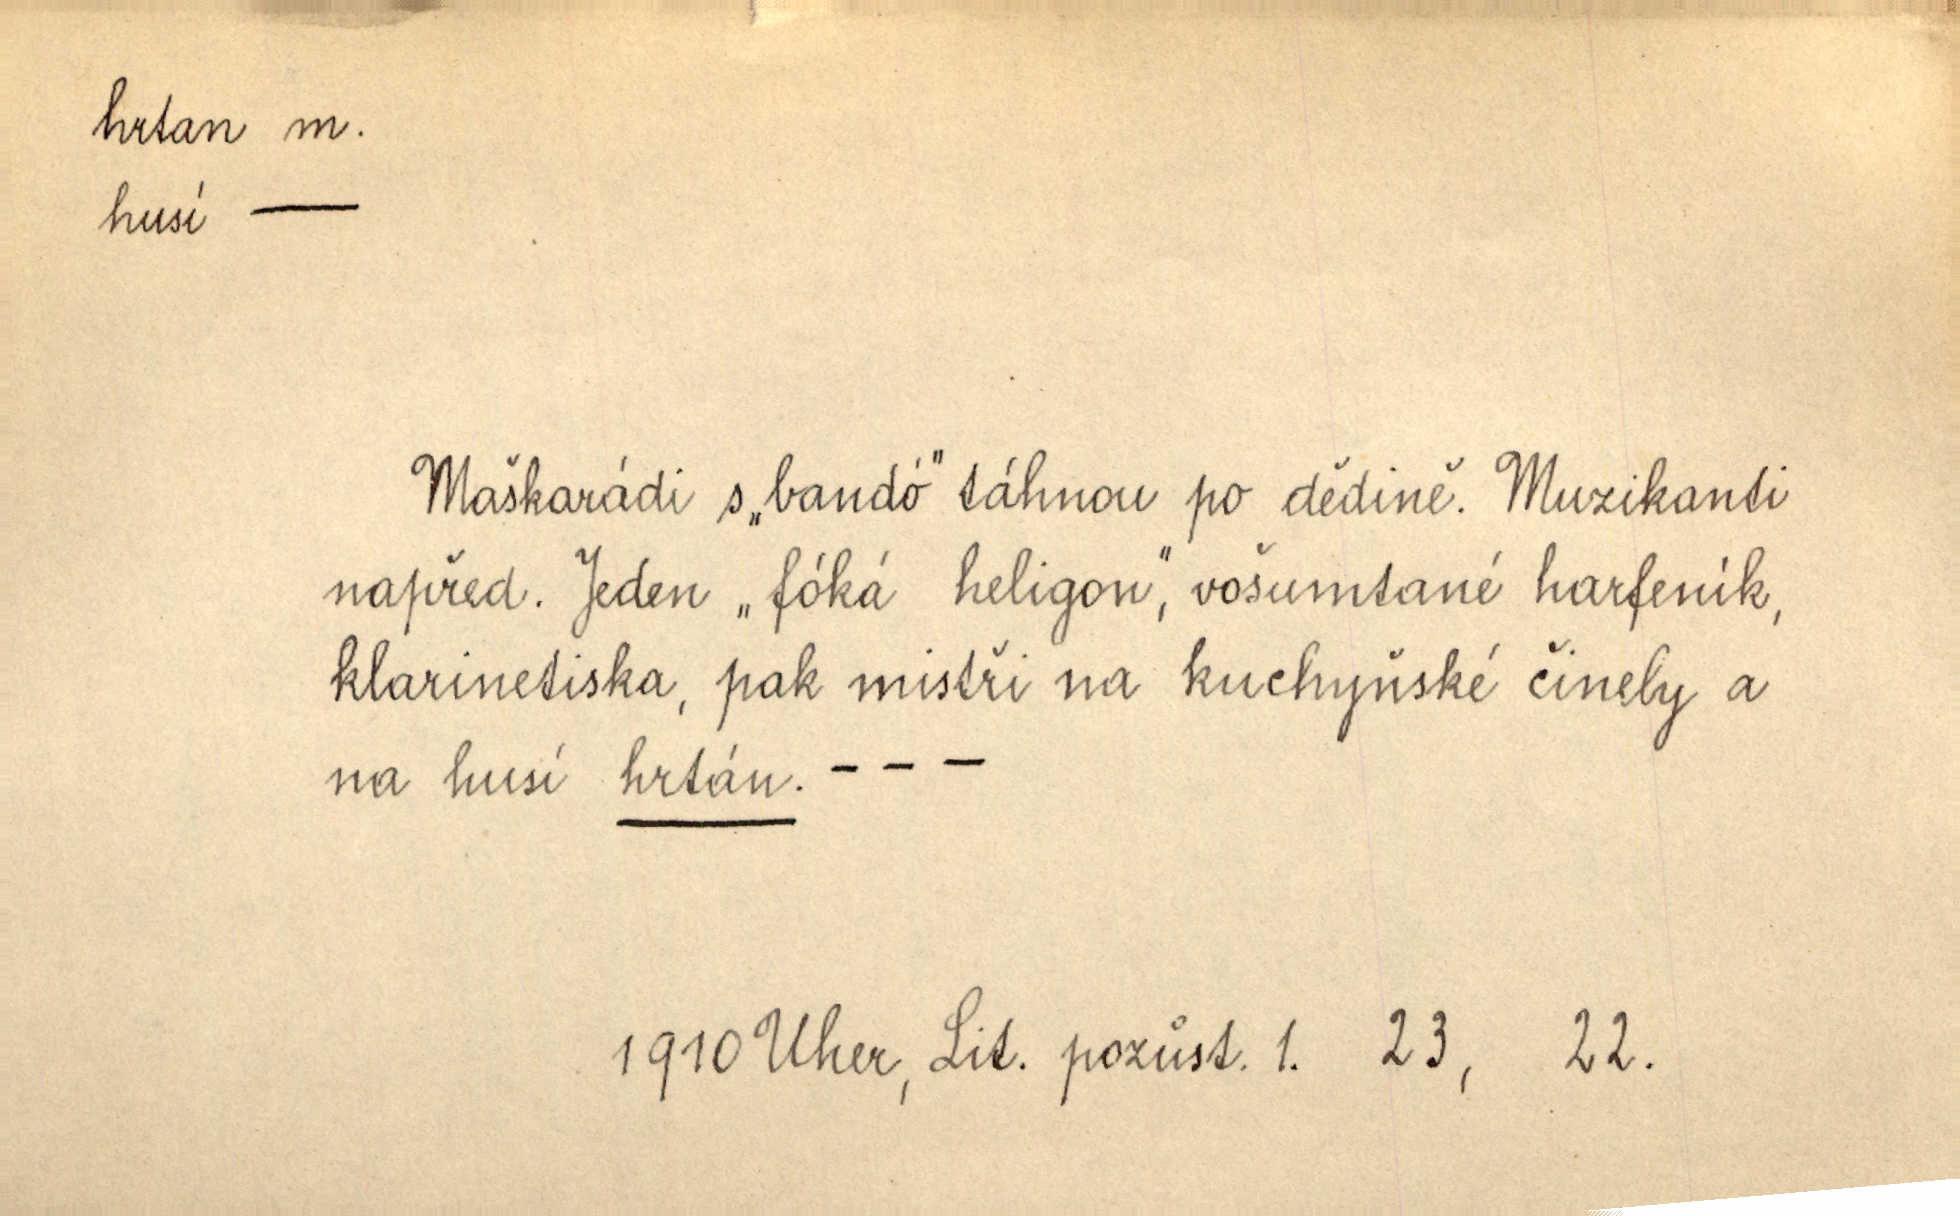 hrtan m.
husí —
Maškarádi s „bandó" táhnou po dědině. Muzikanti
napřed. Jeden „fóká heligon", vošumtané harfeník,
klarinetiska, pak mistři na kuchyňské činely a
na husí hrtán. - - -
1910 Uher, Lit. pozůst. 1. 23, 22.